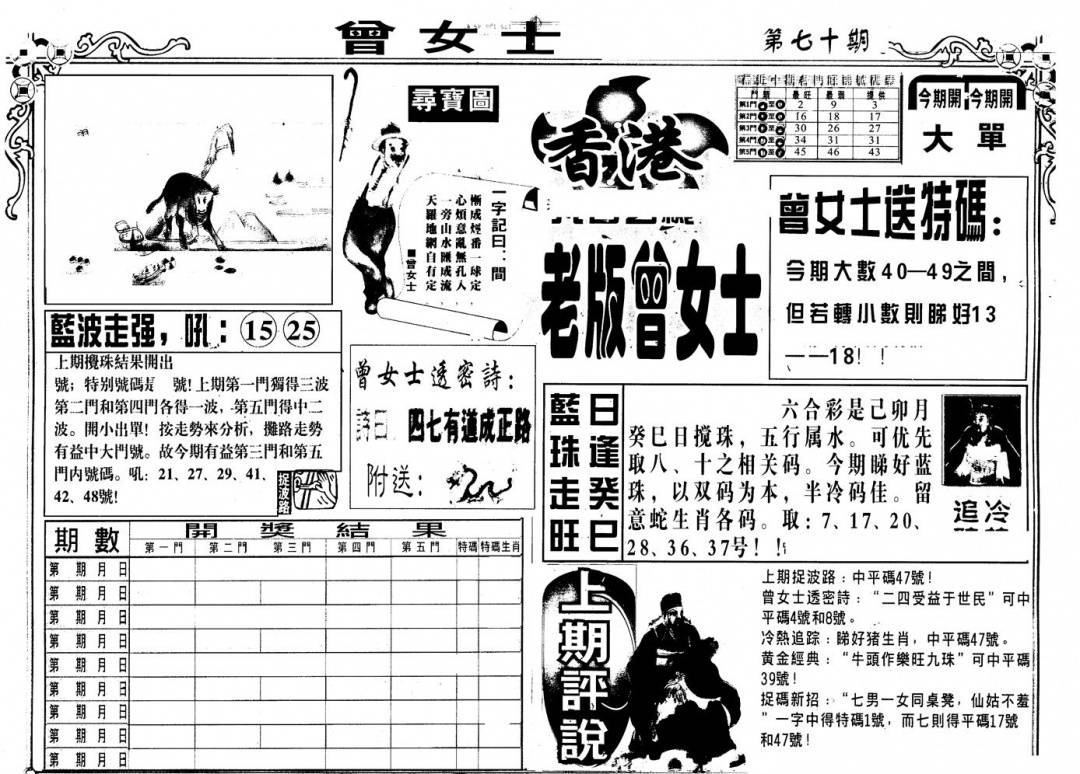 曾女士
第七十期
尋寶圖
一字記曰：間
慚成煙番一球定
心煩意亂無孔入
一旁山水匯成流
天羅地網自有定
曾女士
藍波走强，吼：15 25
上期攪珠結果開出
號；特别號碼是 號！上期第一門獨得三波
第二門和第四門各得一波，第五門得中二
波。開小出單！按走勢來分析，攤路走勢
有益中大門號。故今期有益第三門和第五
門内號碼。吼：21、27、29、41、
42、48號！
捉波路
曾女士透密詩：
詩曰 四七有道成正路
附送：
期數
開獎結果
第一門 第二門 第三門 第四門 第五門 特碼 特碼生肖
第 期 月 日
第 期 月 日
第 期 月 日
第 期 月 日
第 期 月 日
第 期 月 日
第 期 月 日
第 期 月 日
第 期 月 日
香港
老版曾女士
門類 最旺 最弱 提供
第1門 至 2 9 3
第2門 至 16 18 17
第3門 至 30 26 27
第4門 至 34 31 31
第5門 至 45 46 43
今期開 今期開
大 單
曾女士送特碼：
今期大數40—49之間，
但若轉小數則睇好13
——18！！
日逢癸巳
藍珠走旺
六合彩是己卯月
癸巳日搅珠，五行属水。可优先
取八、十之相关码。今期睇好蓝
珠，以双码为本，半冷码佳。留
意蛇生肖各码。取：7、17、20、
28、36、37号！！
追冷
上期評説
上期捉波路：中平碼47號！
曾女士透密詩：“二四受益于世民”可中
平碼4號和8號。
冷熱追踪：睇好猪生肖，中平碼47號。
黄金經典：“牛頭作樂旺九珠”可中平碼
39號！
捉碼新招：“七男一女同桌凳，仙姑不羞
”一字中得特碼1號，而七則得平碼17號
和47號！